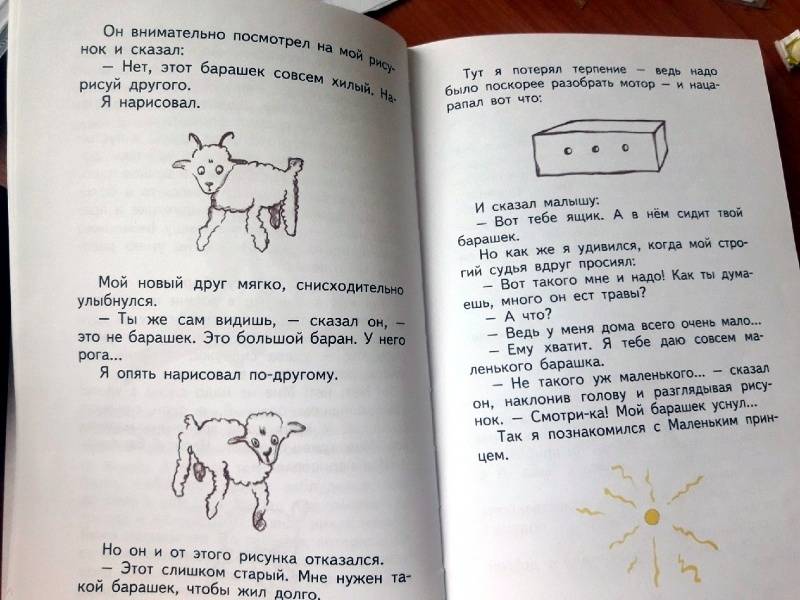 Он внимательно посмотрел на мой рису-
нок и сказал:
— Нет, этот барашек совсем хилый. На-
рисуй другого.
Я нарисовал.
Мой новый друг мягко, снисходительно
улыбнулся.
— Ты же сам видишь, — сказал он, —
это не барашек. Это большой баран. У него
рога...
Я опять нарисовал по-другому.
Но он и от этого рисунка отказался.
— Этот слишком старый. Мне нужен та-
кой барашек, чтобы жил долго.
Тут я потерял терпение — ведь надо
было поскорее разобрать мотор — и наца-
рапал вот что:
И сказал малышу:
— Вот тебе ящик. А в нём сидит твой
барашек.
Но как же я удивился, когда мой стро-
гий судья вдруг просиял:
— Вот такого мне и надо! Как ты дума-
ешь, много он ест травы?
— А что?
— Ведь у меня дома всего очень мало...
— Ему хватит. Я тебе даю совсем ма-
ленького барашка.
— Не такого уж маленького... — сказал
он, наклонив голову и разглядывая рису-
нок. — Смотри-ка! Мой барашек уснул...
Так я познакомился с Маленьким прин-
цем.